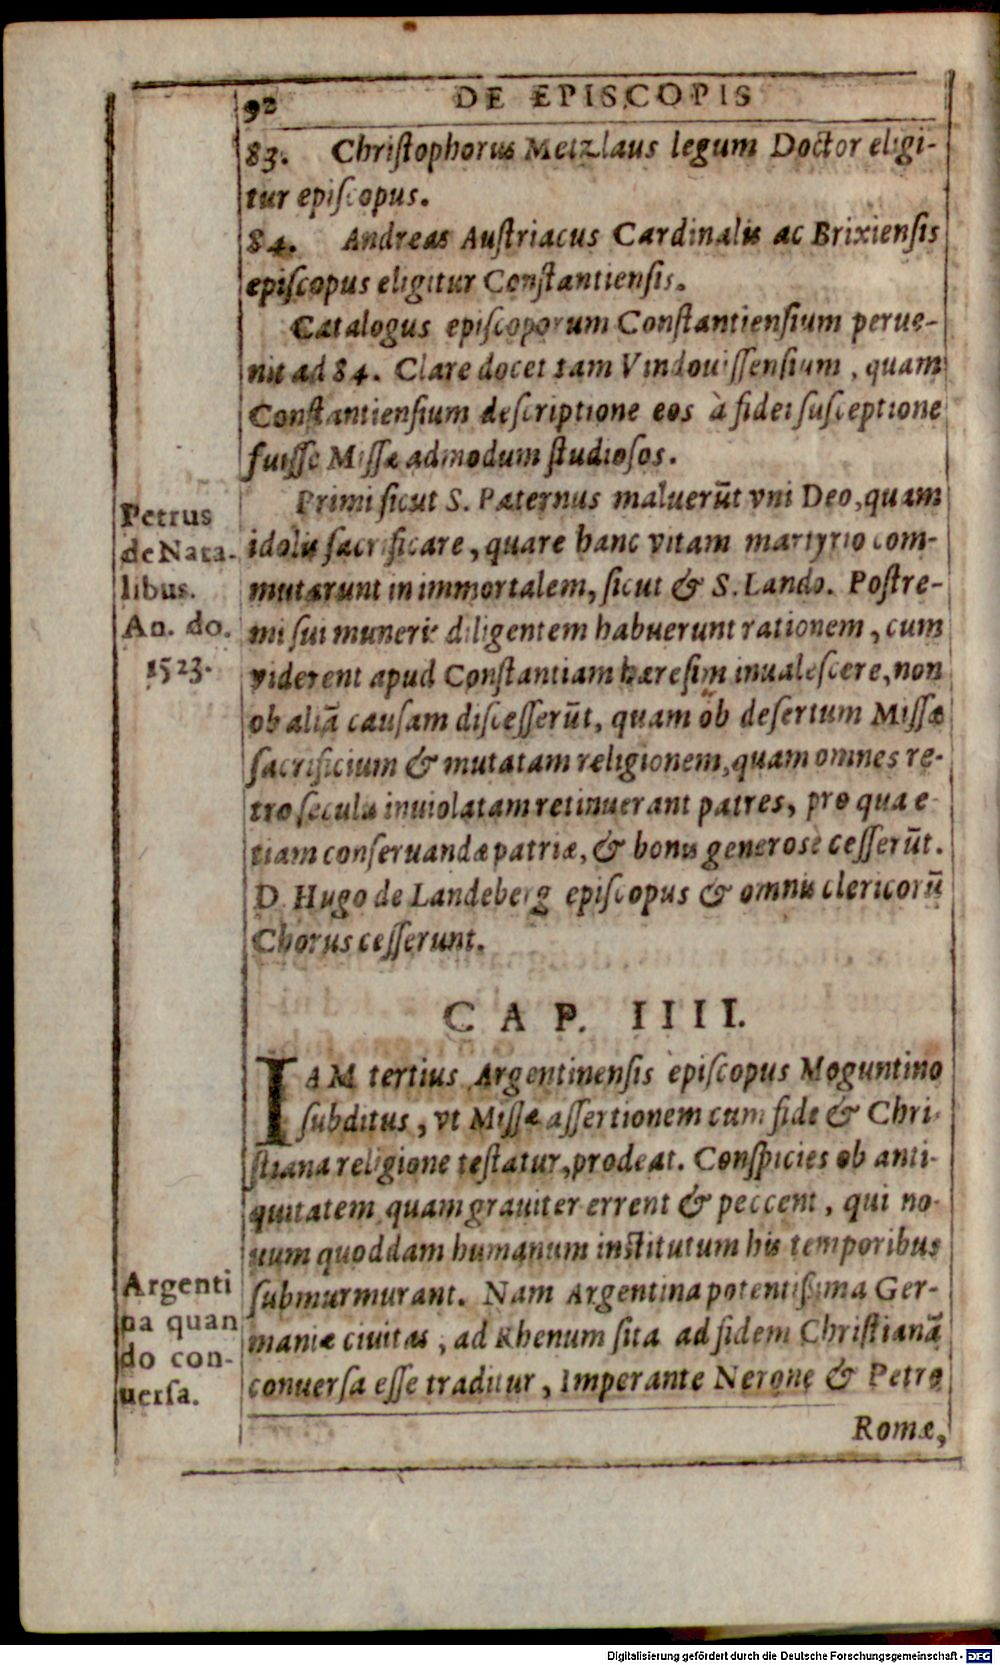 92 DE EPISCOPIS
83. Chriſtophorus Metzlaus legum Doctor eligi-
tur epiſcopus.
84. Andreas Auſtriacus Cardinalis ac Brixienſis
epiſcopus eligitur Conſtantienſis.
Catalogus epiſcoporum Conſtantienſium perue-
nit ad 84. Clare docet tam Vindouiſſenſium, quam
Conſtantienſium deſcriptione eos à fidei ſuſceptione
fuiſſe Miſſæ admodum ſtudioſos.
Primi ſicut S. Paternus maluerūt vni Deo, quam
idolis ſacrificare, quare hanc vitam martyrio com-
mutarunt in immortalem, ſicut & S. Lando. Poſtre-
mi ſui muneris diligentem habuerunt rationem, cum
viderent apud Conſtantiam hæreſim inualeſcere, non
ob aliā cauſam diſceſſerūt, quam ob deſertum Miſſæ
ſacrificium & mutatam religionem, quam omnes re-
tro ſeculis inuiolatam retinuerant patres, pro qua e
tiam conſeruanda patriæ, & bonis generose ceſſerūt.
D. Hugo de Landeberg epiſcopus & omnis clericorū
Chorus ceſſerunt.
Petrus
de Nata-
libus.
An. do.
1523.
CAP. IIII.
IAM tertius Argentinenſis epiſcopus Moguntino
ſubditus, vt Miſſæ aſſertionem cum fide & Chri-
ſtiana religione teſtatur, prodeat. Conſpicies ob anti-
quitatem quam grauiter errent & peccent, qui no-
uum quoddam humanum inſtitutum his temporibus
ſubmurmurant. Nam Argentina potentiſsima Ger-
maniæ ciuitas, ad Rhenum ſita ad fidem Chriſtianā
conuerſa eſſe traditur, Imperante Nerone & Petro
Argenti
na quan
do con-
uerſa.
Romæ,
Digitalisierung gefördert durch die Deutsche Forschungsgemeinschaft - DFG